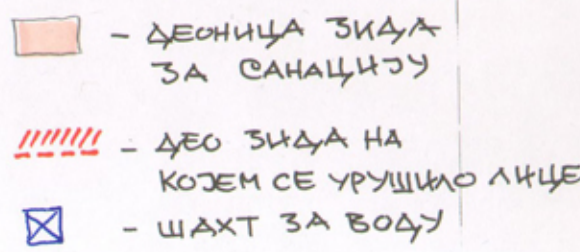 - ДЕОНИЦА ЗИДА
ЗА САНАЦИЈУ
- ДЕО ЗИДА НА
КОЈЕМ СЕ УРУШИЛО ЛИЦЕ
- ШАХТ ЗА ВОДУ